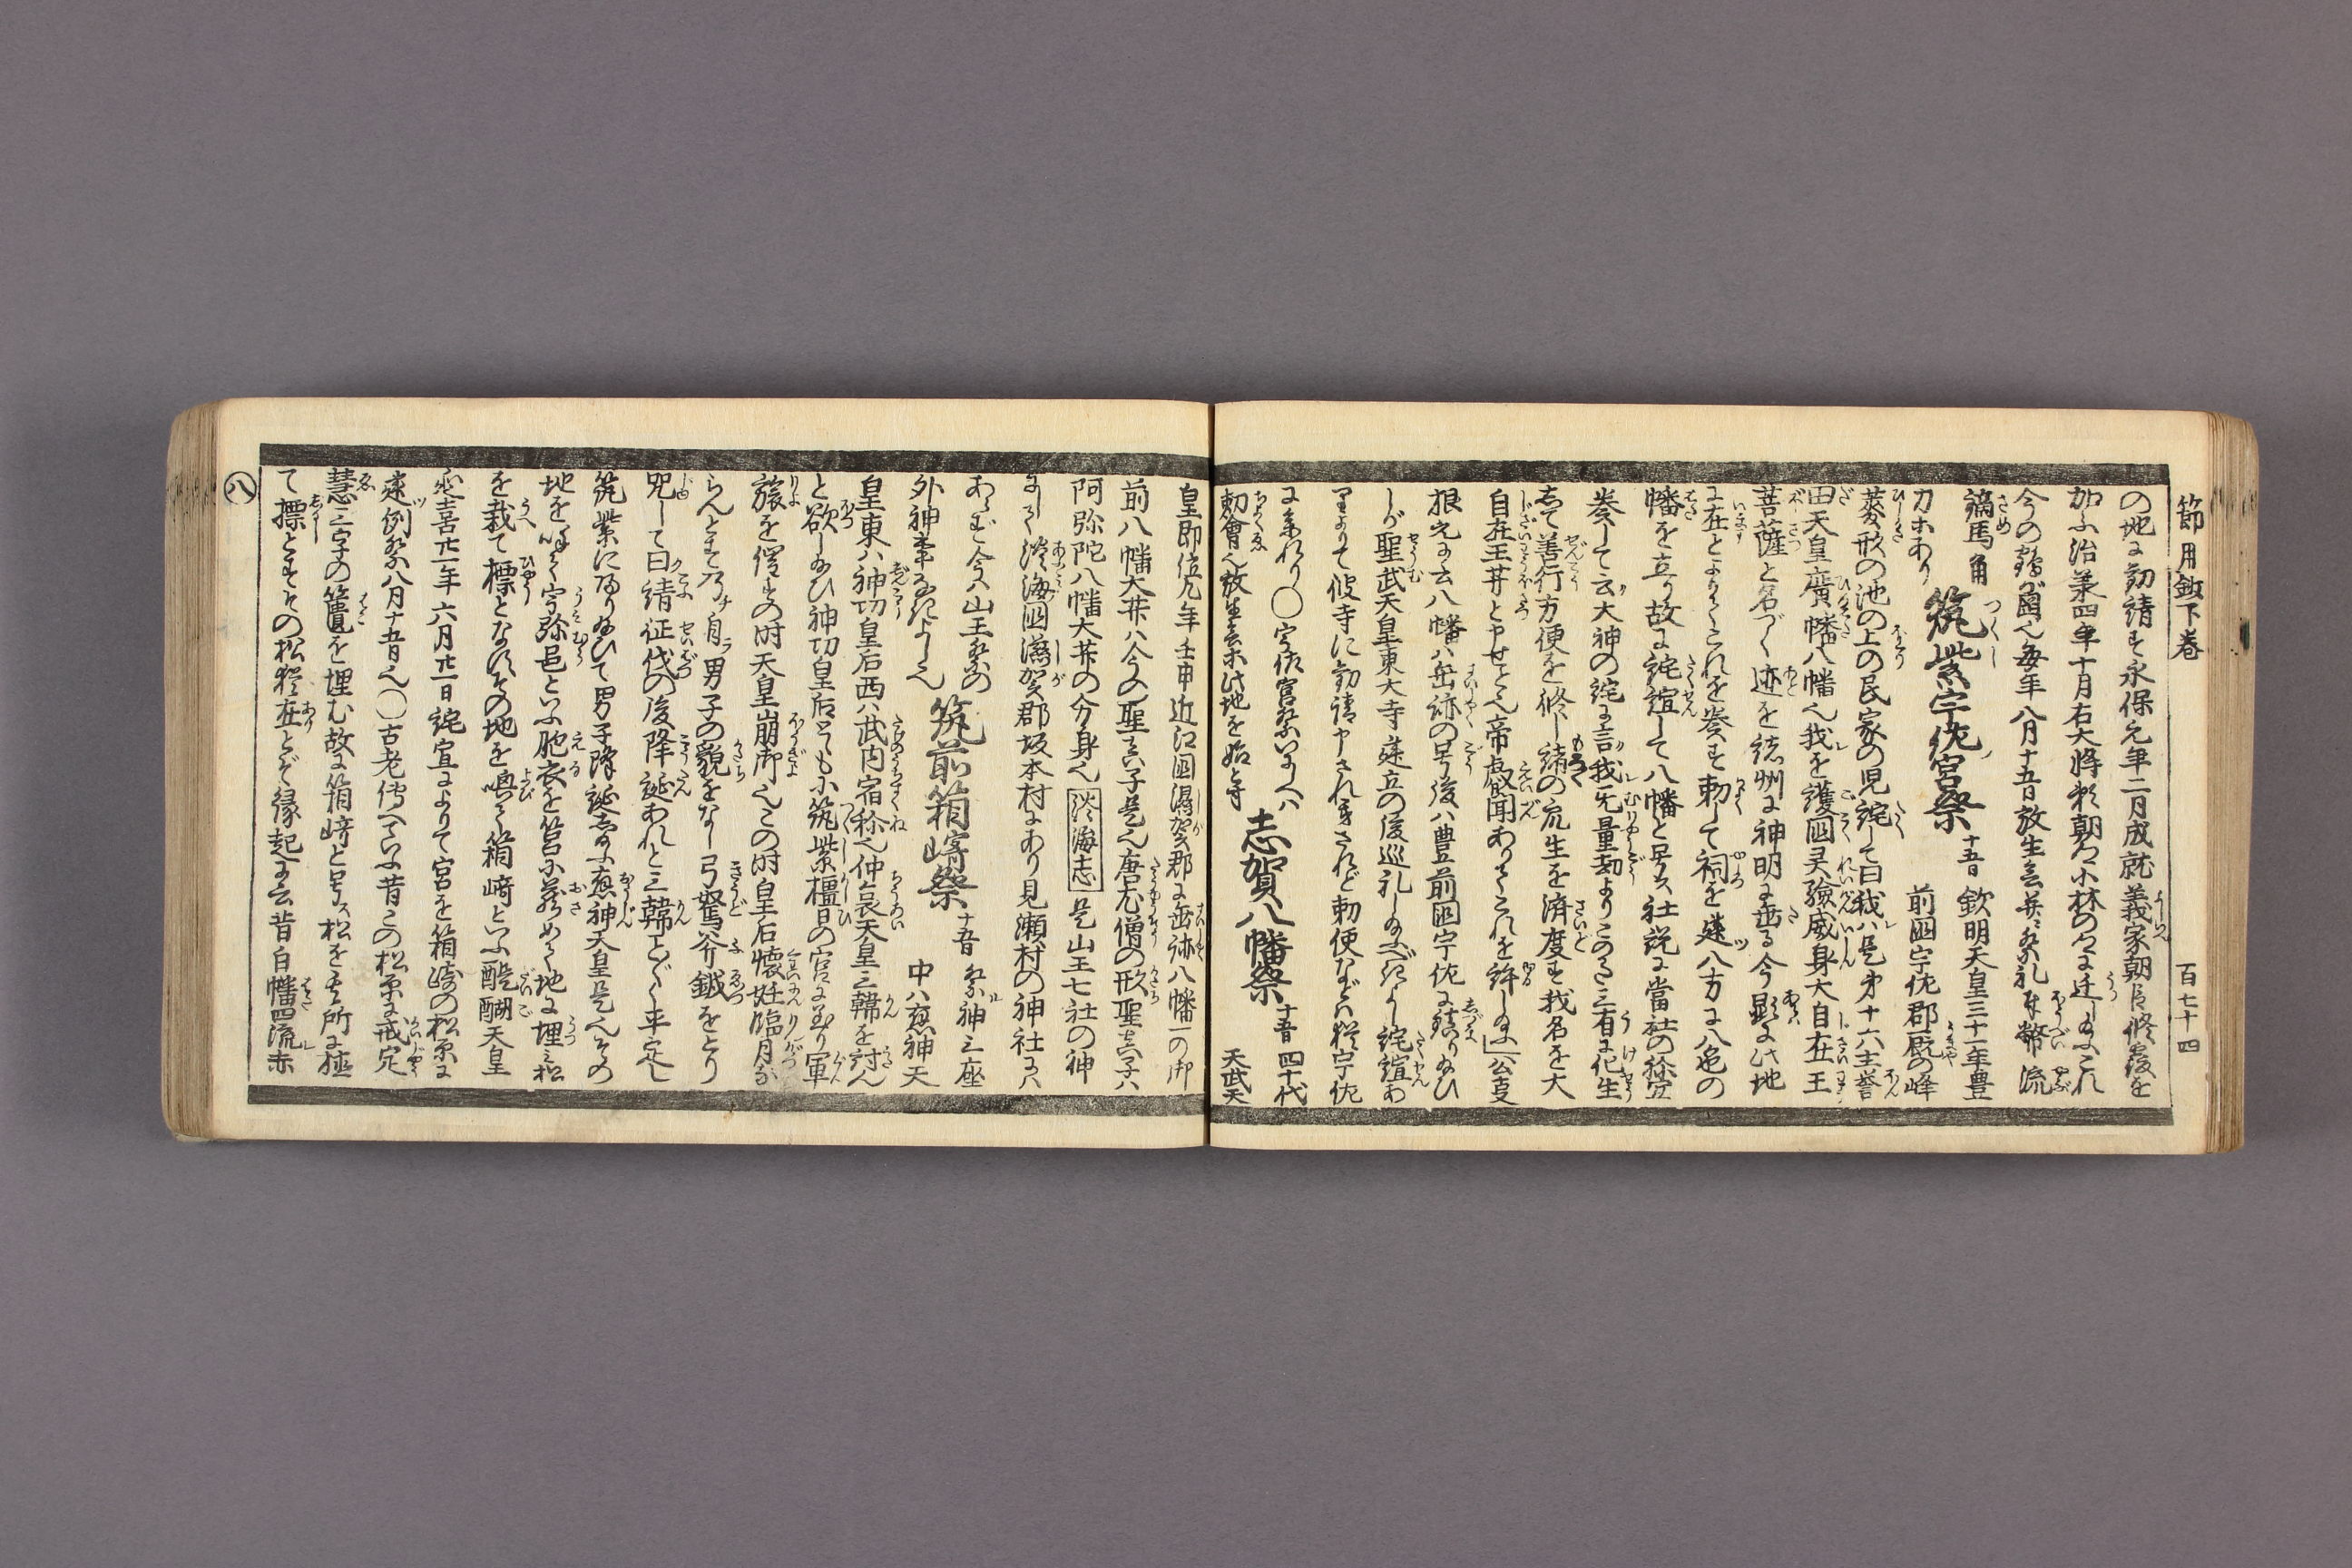 節用鈫下巻 百七十四
の地に勧請す永保元年二月成就義家朝臣修復を
加ふ治承四年十月右大将頼朝公小林の郷に迁し給ふこれ
今の鶴が岡也毎年八月十五日放生会并祭礼奉幣流
鏑馬角
力ホあり 筑紫宇佐宮祭 十五日 欽明天皇三十一年豊
前国宇佐郡厩の峰
菱形の池の上の民家の児詫して曰我ハ是才十六主誉
田天皇廣幡八幡也我を護国灵験威身大自在王
菩薩と名づく迹を諸州に神明に垂る今顕に此地
に在とよりてこれを奏す勅して祠を建八方に八色の
幡を立る故に詫諠して八幡と号ス社説に當社の祢宜
奏して云大神の詫に言我无量劫よりこのる三有に化生
して善行方便を修し諸の衆生を済度す我名を大
自在王井と申せと也帝叡聞ありてこれを許し給ふ公事
根元に云八幡ハ垂跡の号後ハ豊前国宇佐に鎮り給ひ
しが聖武天皇東大寺建立の後巡礼し給ふべきよし詫諠あ
りよりて彼寺に勧請申されきされど勅使などハ猶宇佐
に参れり〇宇佐宮祭いにしへハ
勅會也放生会ホ此地を始とす 志賀八幡祭 十五日 四十代
天武天
皇即位元年壬申近江国滋賀郡に垂跡八幡一の御
前八幡大井ハ今の聖真子是也唐尤僧の形聖真子ハ
阿弥陀八幡大井の分身也 淡海志 是山王七社の神
にして淡海国滋賀郡坂本村にあり見瀬村の神社にハ
あらむ今ハ山王祭の
外神事なきよし也 筑前箱崎祭 十五日 祭神三座
中ハ應神天
皇東ハ神功皇后西ハ武内宿祢也仲哀天皇三韓を討ん
と欲し給ひ神功皇后ともに筑紫橿日の宮に至り軍
旅を催すの时天皇崩御也この时皇后懐妊臨月な
らんとす乃チ自ラ男子の貌をなし弓弩斧鉞をとり
咒して曰請征伐の後降誕あれと三韓ことごとく平定し
筑紫に帰り給ひて男子降誕し給ふ應神天皇是也その
地を号て宇弥邑といふ胞衣を筥に蔵めて地に埋ミ松
を栽て標となすその地を喚て箱﨑といふ醍醐天皇
延喜廿一年六月廿一日詫宣によりて宮を箱崎の松原に
建例祭八月十五日也〇古老傳へていふ昔この松原に戒定
慧三字の篋を埋む故に箱﨑と号ス松を其所に植
て標とすその松猶在とぞ縁起に云昔白幡四流赤
八